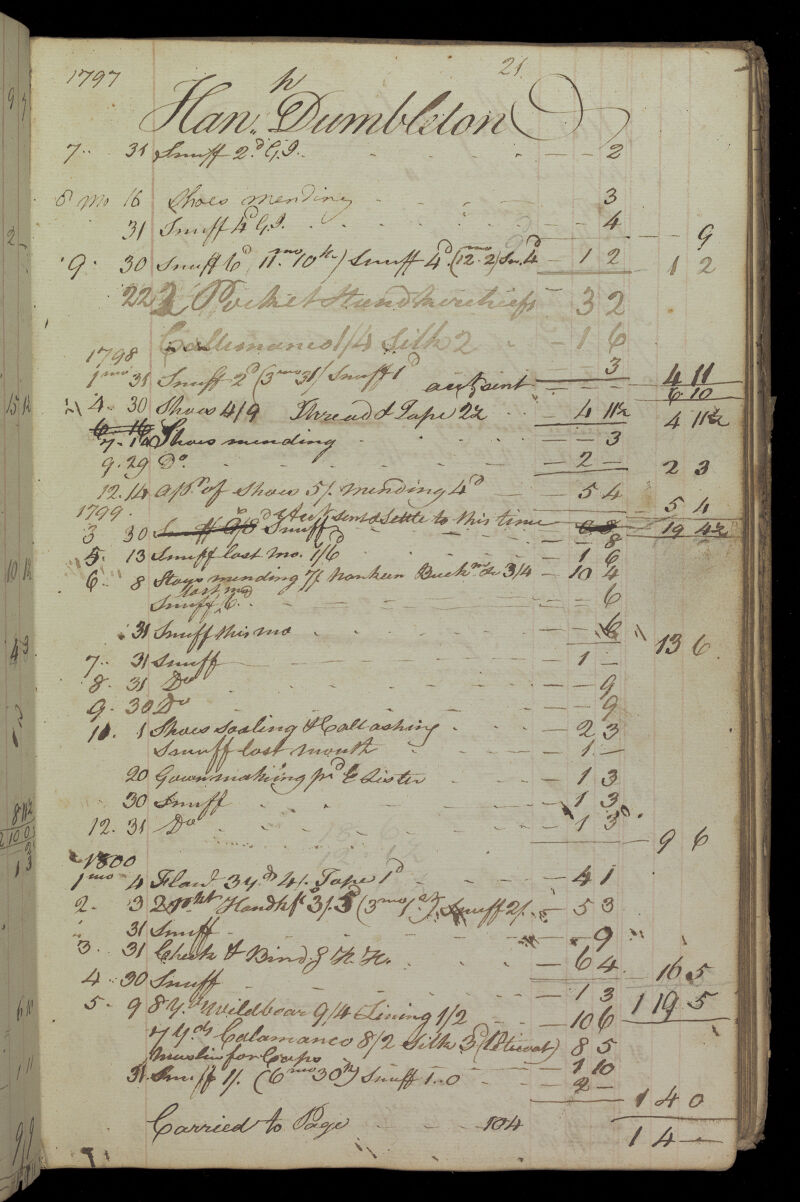 1797 21
Han.h Dumbleton
7.. 31 Snuff 2d G.I. 2
8 mo 16 Shoes mending 3
31 Snuff 4d G.I. 4 9
9. 30 Snuff 6d 11mo 10th) Snuff 4d (12mo.2) Sn.4d 1 2 1 2
22 2 Pocket Handkerchiefs 3 2
Callimanco 1/4 Silk 2 1 6
1798
1mo 31 Snuff 2d (3mo 31) Snuff 1d 3 4 11
acct sent 6 10
4. 30 Shoes 4/9 Thread & Tape 2½ 4 11½ 4 11½
7. 14 Shoes mending 3
9. 29 Do. 2 2 3
12. 14 a pr of Shoes 5/. mending 4d 5 4 5 4
1799 acct sent & Settle to this time 19 4½
3 30 Snuff 8
5. 13 Snuff last mo. 1/6d 1 6
6. 8 Stays mending 7/ Nankeen Buckm &c 3/4 10 4
Snuff last mo 6d 6
31 Snuff this mo 6 13 6
7.. 31 Snuff 1
8. 31 Do 9
9. 30 Do 9
10. 1 Shoes soaling & Calf ashing 2 3
Snuff last month 1
20 Gown making pd E Lister 1 3
30 Snuff 1 3
12. 31 Do 1 3 9 6
1800
1mo 4 Flanl 3 yds 4/. Tape 1d 4 1
2. 3 2 pokt Handkfs 3/.3d (3mo 1st) Snuff 2/. 5 3
31 Snuff 9
3. 31 Check & Bind.g H. H. 6 4 16 5
4. 30 Snuff 1 3 1 19 5
5. 9 8 Yds Wildboar 9/4 Lining 1/2 10 6
7 Yds Calamanco 8/2 Silk 3d (Peticoat) 8 5
Muslin for Caps 1 10
31 Snuff 1/. (6mo 30th) Snuff 1..0 2 1 4 0
Carried to Page 104 1 4